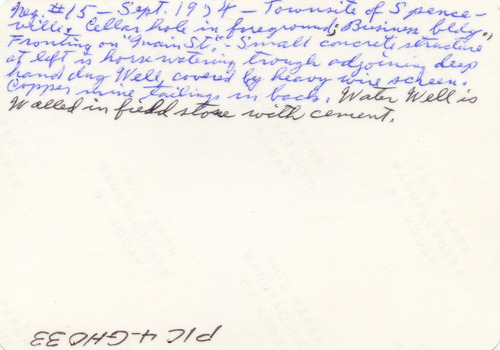 Neg. #15 - Sept. 1974 - Townsite of Spence-
ville. Cellar hole in foreground; Business bldg.,
Fronting on "Main St." - Small concrete structure
at left is horse watering trough adjoining deep
hand dug Well, covered by heavy wire screen.
Copper mine tailings in back. Water Well is
Walled in field stone with cement.
PIC 4-GHO33